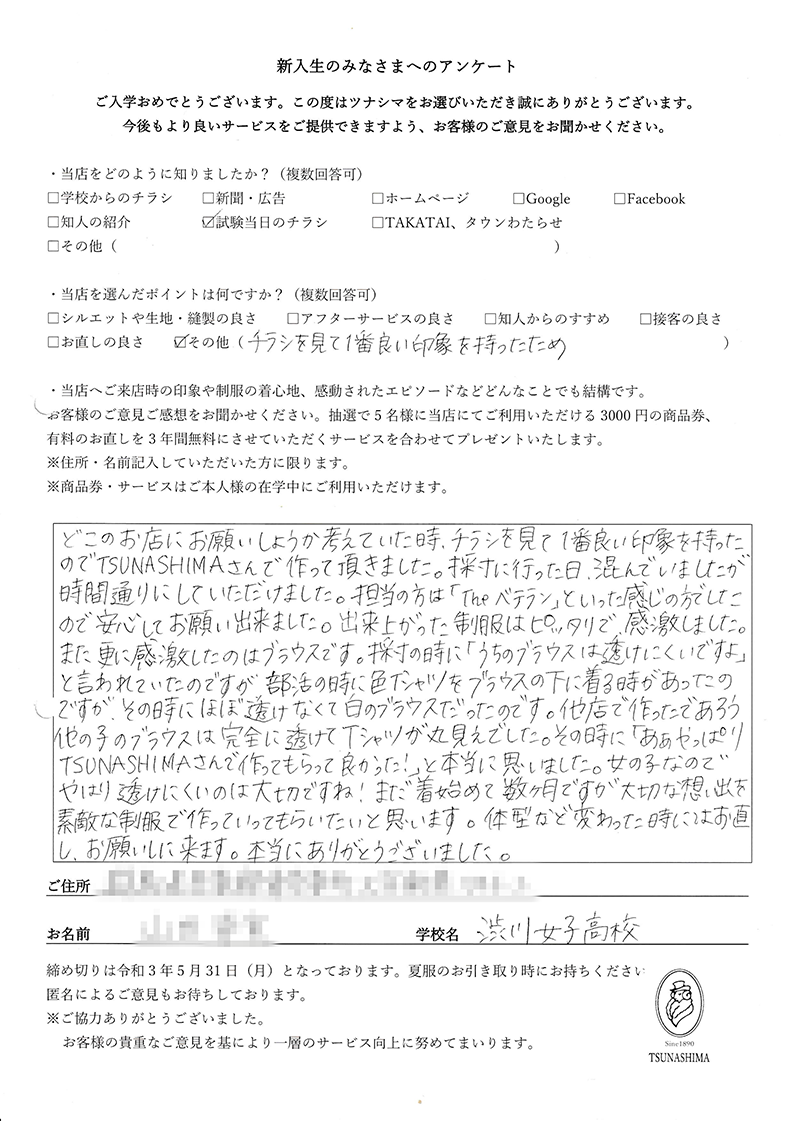 新入生のみなさまへのアンケート
ご入学おめでとうございます。この度はツナシマをお選びいただき誠にありがとうございます。
今後もより良いサービスをご提供できますよう、お客様のご意見をお聞かせください。
・当店をどのように知りましたか？（複数回答可）
□学校からのチラシ □新聞・広告 □ホームページ □Google □Facebook
□知人の紹介 ☑試験当日のチラシ □TAKATAI、タウンわたらせ
□その他（ ）
・当店を選んだポイントは何ですか？（複数回答可）
□シルエットや生地・縫製の良さ □アフターサービスの良さ □知人からのすすめ □接客の良さ
□お直しの良さ ☑その他（チラシを見て1番良い印象を持ったため ）
・当店へご来店時の印象や制服の着心地、感動されたエピソードなどどんなことでも結構です。
お客様のご意見ご感想をお聞かせください。抽選で5名様に当店にてご利用いただける3000円の商品券、
有料のお直しを3年間無料にさせていただくサービスを合わせてプレゼントいたします。
※住所・名前記入していただいた方に限ります。
※商品券・サービスはご本人様の在学中にご利用いただけます。
どこのお店にお願いしようか考えていた時、チラシを見て1番良い印象を持った
のでTSUNASHIMAさんで作って頂きました。採寸に行った日、混んでいましたが
時間通りにしていただけました。担当の方は「Theベテラン」といった感じの方でした
ので安心してお願い出来ました。出来上がった制服はピッタリで感激しました。
また更に感激したのはブラウスです。採寸の時に「うちのブラウスは透けにくいですよ」
と言われていたのですが部活の時に色Tシャツをブラウスの下に着る時があったの
ですが、その時にほぼ透けなくて白のブラウスだったのです。他店で作ったであろう
他の子のブラウスは完全に透けてTシャツが丸見えでした。その時に「あぁやっぱり
TSUNASHIMAさんで作ってもらって良かった！」と本当に思いました。女の子なので
やはり透けにくいのは大切ですね！まだ着始めて数ヶ月ですが大切な想い出を
素敵な制服で作っていってもらいたいと思います。体型など変わった時にはお直
し、お願いしに来ます。本当にありがとうございました。
ご住所
お名前 学校名 渋川女子高校
締め切りは令和3年5月31日（月）となっております。夏服のお引き取り時にお持ちください
匿名によるご意見もお待ちしております。
※ご協力ありがとうございました。
お客様の貴重なご意見を基により一層のサービス向上に努めてまいります。
Since1890
TSUNASHIMA